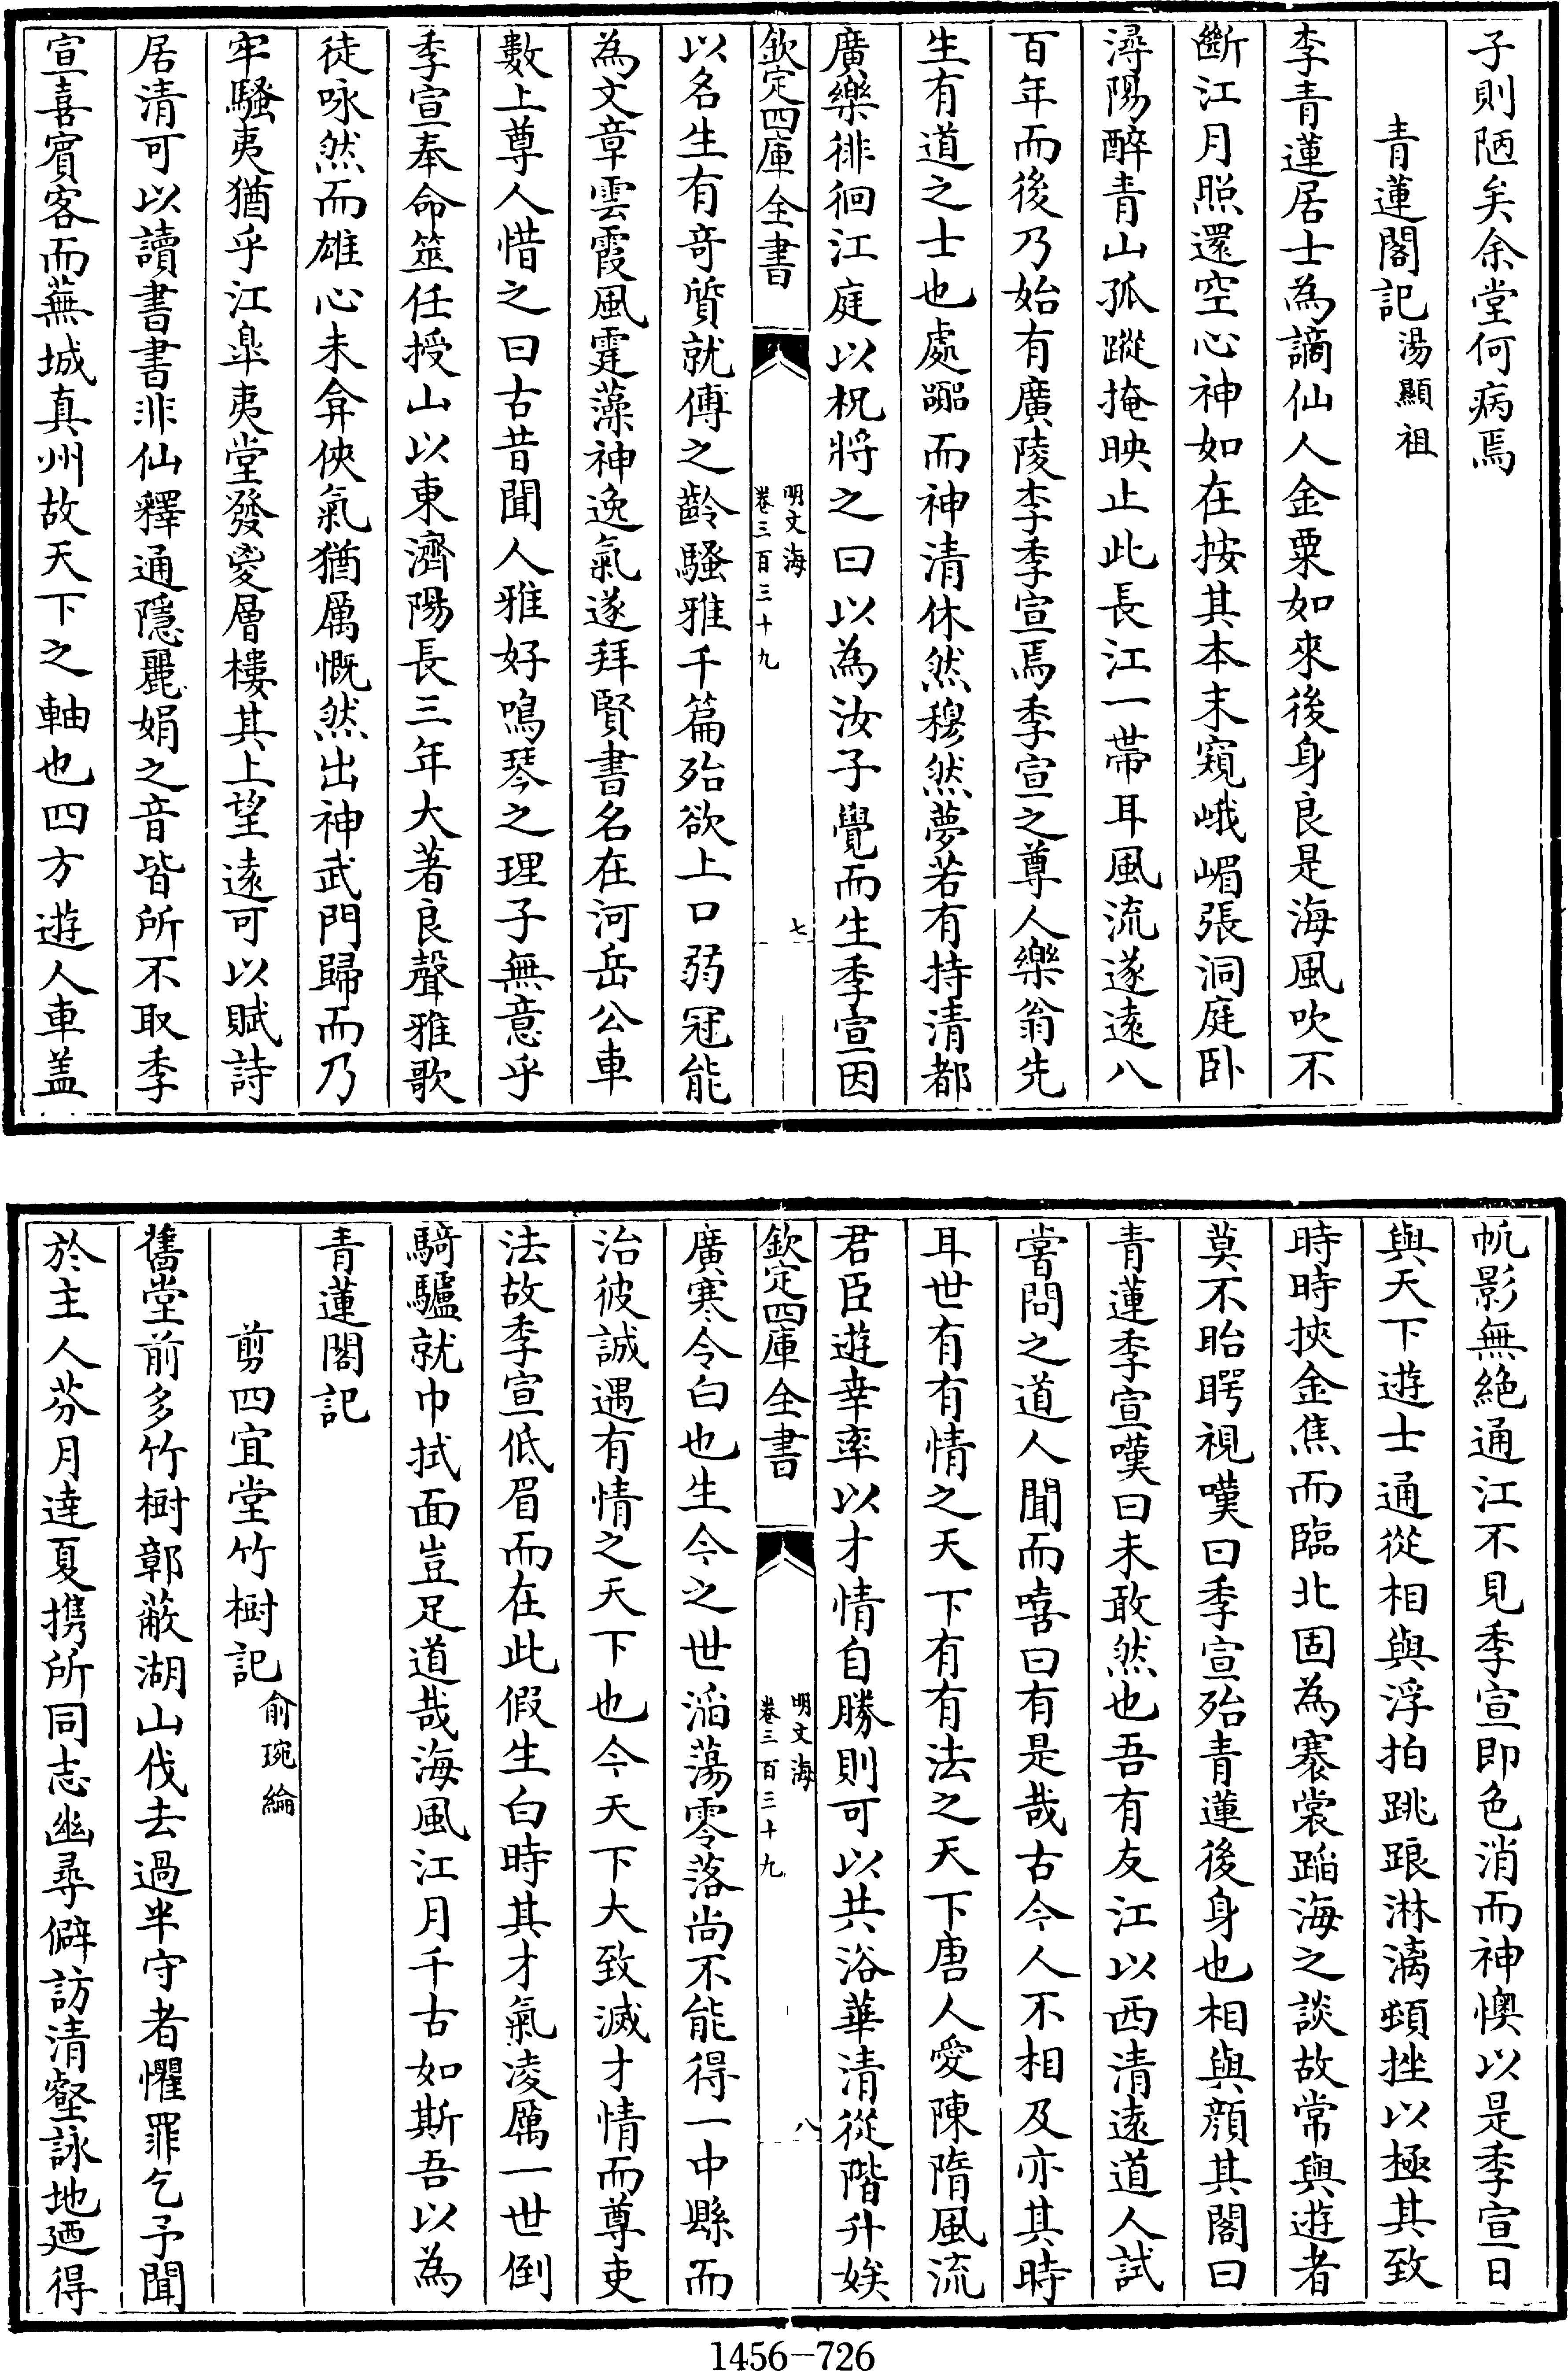 子則陋矣余堂何病焉
青蓮閣記湯顯祖
李青蓮居士為謫仙人金粟如來後身良是海風吹不
斷江月照還空心神如在按其本末窺峨嵋張洞庭卧
潯陽醉青山孤蹤掩映止此長江一帶耳風流遂遠八
百年而後乃始有廣陵李季宣焉季宣之尊人樂翁先
生有道之士也處嚚而神清休然穆然夢若有持清都
廣樂徘徊江庭以柷將之曰以為汝子覺而生季宣因
欽定四庫全書
明文海
卷三百三十九
七
以名生有奇質就傅之齡騷雅千篇殆欲上口弱冠能
為文章雲霞風霆藻神逸氣遂拜賢書名在河岳公車
數上尊人惜之曰古昔聞人雅好鳴琴之理子無意乎
季宣奉命筮任授山以東濟陽長三年大著良聲雅歌
徒咏然而雄心未弇俠氣猶厲慨然出神武門歸而乃
牢騷夷猶乎江臯夷堂發㝸層樓其上望遠可以賦詩
居清可以讀書書非仙釋通隱麗娟之音皆所不取季
宣喜賓客而蕪城真州故天下之軸也四方遊人車盖
帆影無絶通江不見季宣即色消而神懊以是季宣日
與天下遊士通從相與浮拍跳踉淋漓頓挫以極其致
時時挾金焦而臨北固為褰裳蹈海之談故常與遊者
莫不眙睊視嘆曰季宣殆青蓮後身也相與顏其閣曰
青蓮季宣嘆曰未敢然也吾有友江以西清遠道人試
嘗問之道人聞而嘻曰有是哉古今人不相及亦其時
耳世有有情之天下有有法之天下唐人愛陳隋風流
君臣遊幸率以才情自勝則可以共浴華清從階升娭
欽定四庫全書
明文海
卷三百三十九
八
廣寒令白也生今之世滔蕩零落尚不能得一中縣而
治彼誠遇有情之天下也今天下大致滅才情而尊吏
法故季宣低眉而在此假生白時其才氣凌厲一世倒
騎驢就巾拭面豈足道哉海風江月千古如斯吾以為
青蓮閣記
剪四宜堂竹樹記俞琬綸
舊堂前多竹樹鄣蔽湖山伐去過半守者懼罪乞予聞
於主人芬月逹夏携所同志幽尋僻訪清壑詠地廼得
1456-726